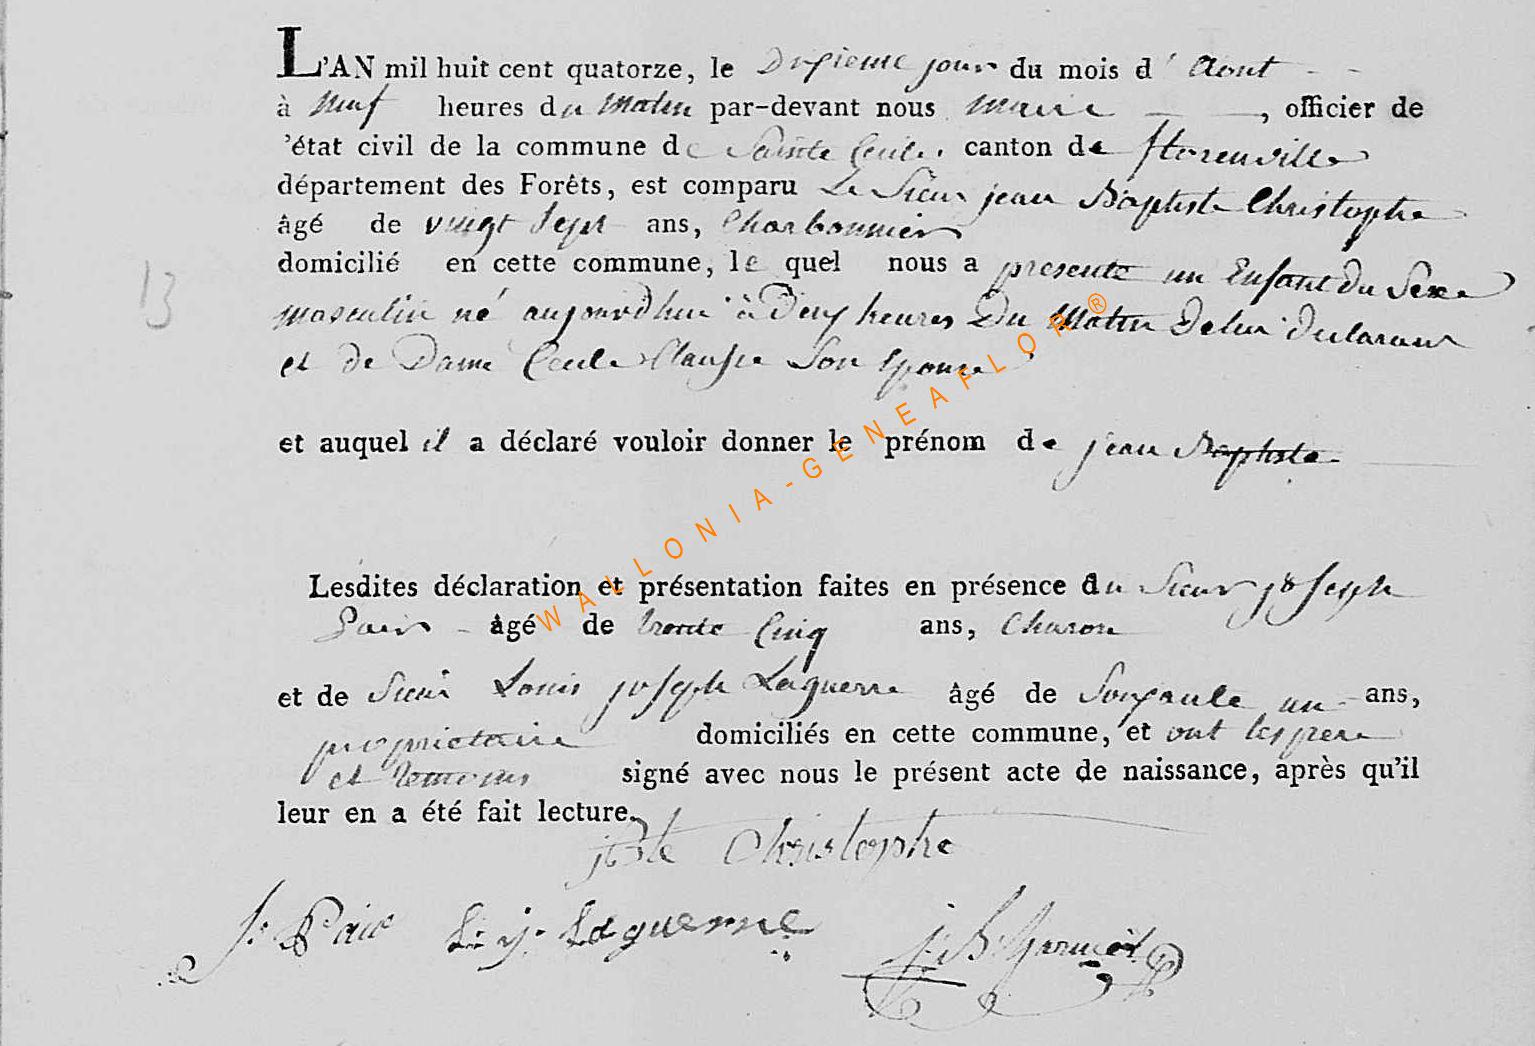 L'AN mil huit cent quatorze, le Dixieme jour du mois d' Aout
à Neuf heures du Matin par-devant nous Maire, officier de
'état civil de la commune de Sainte Cecile, canton de florenville
département des Forêts, est comparu Le Sieur jean Baptiste Christophe
âgé de vingt Sept ans, Charbonnier
domicilié en cette commune, le quel nous a presenté un Enfant Du Sexe
13
masculin né aujourd'hui à Deux heures Du Matin De lui Declarant
et de Dame Cecile Clausse Son Epouse
et auquel il a déclaré vouloir donner le prénom de jean Baptiste
Lesdites déclaration et présentation faites en présence du Sieur joseph
âgé de trente Cinq ans, Charon
et de Sieur Louis joseph Laguerre âgé de Soixante un ans,
proprietaire domiciliés en cette commune, et ont les pere
et temoins signé avec nous le présent acte de naissance, après qu'il
leur en a été fait lecture.
jBte Christophe
J: Paix L: j: Laguerre
WALLONIA-GENEAFLOR®